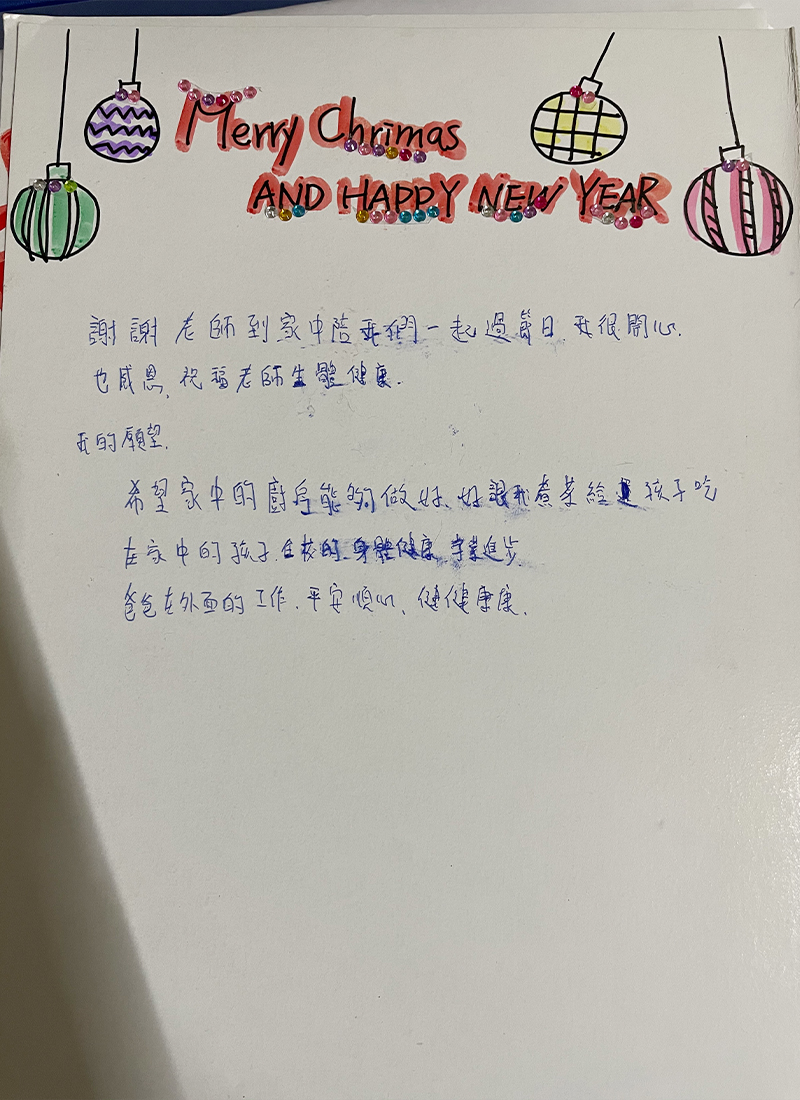 Merry Chrimas
AND HAPPY NEW YEAR
謝謝老師到家中陪我們一起過節日.我很開心.
也感恩.祝福老師生體健康.
我的願望.
希望家中的廚房能夠做好.好讓我煮菜給孩子吃
在家中的孩子.在校的.身體健康.學業進步.
爸爸在外面的工作.平安順心、健健康康.